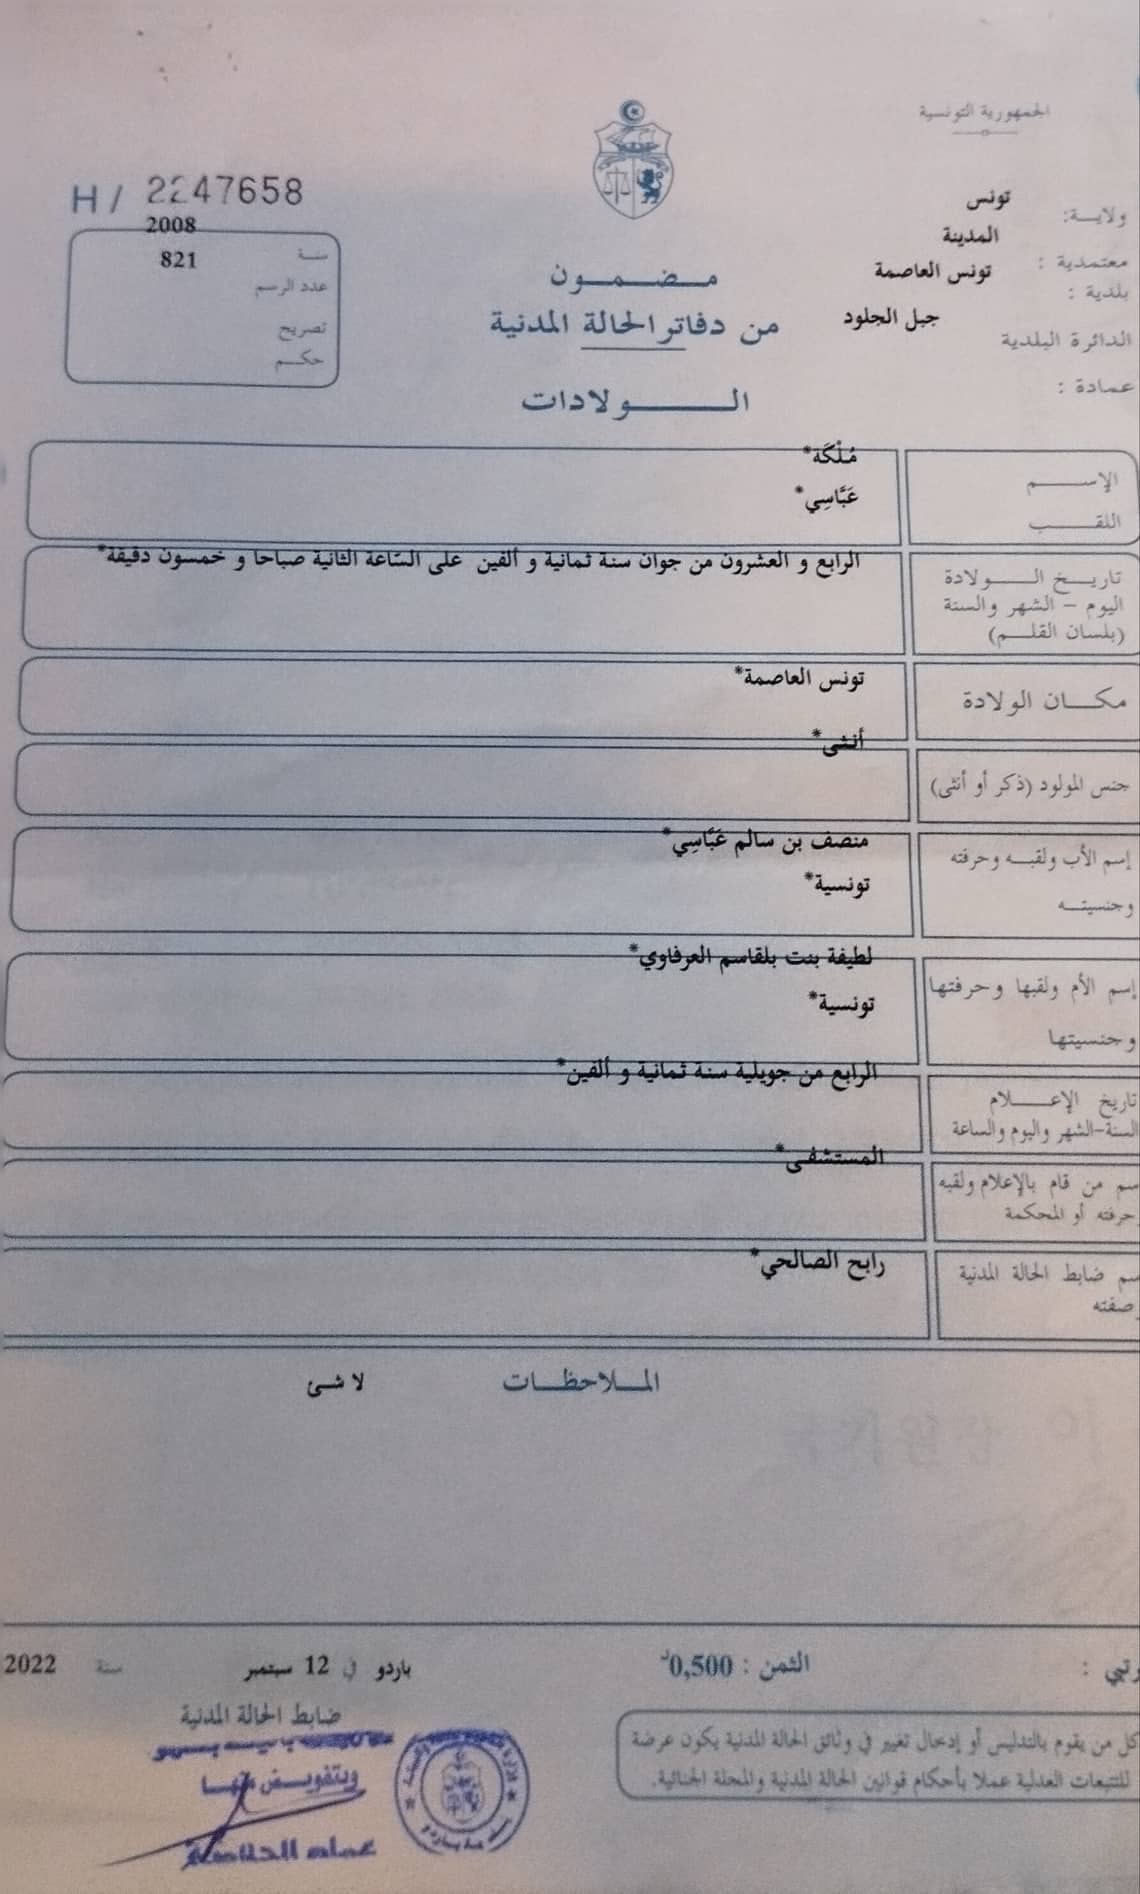 الجمهورية التونسية
ولاية: تونس
معتمدية : المدينة
بلدية : تونس العاصمة
الدائرة البلدية جبل الجلود
عمادة :
H / 2247658
سنة 2008
عدد الرسم 821
تصريح
حكم
مضمون
من دفاتر الحالة المدنية
الولادات
الإسم مُلْكَة*
اللقب عَبَّاسِي*
تاريخ الولادة
اليوم – الشهر والسنة
(بلسان القلم)
الرابع و العشرون من جوان سنة ثمانية و ألفين على السّاعة الثانية صباحا و خمسون دقيقة*
مكان الولادة تونس العاصمة*
جنس المولود (ذكر أو أنثى) أنثى*
إسم الأب ولقبه وحرفته منصف بن سالم عَبَّاسِي*
وجنسيته تونسية*
إسم الأم ولقبها وحرفتها لطيفة بنت بلقاسم العرفاوي*
وجنسيتها تونسية*
تاريخ الإعلام الرابع من جويلية سنة ثمانية و ألفين*
السنة-الشهر واليوم والساعة
سم من قام بالإعلام ولقبه المستشفى*
حرفته أو المحكمة
سم ضابط الحالة المدنية رابح الصالحي*
صفته
الملاحظات لا شئ
الثمن : 0,500د
باردو في 12 سبتمبر سنة 2022
ضابط الحالة المدنية
وبتفويض منها
كل من يقوم بالتدليس أو إدخال تغيير في وثائق الحالة المدنية يكون عرضة
للتتبعات العدلية عملا بأحكام قوانين الحالة المدنية والمجلة الجنائية.